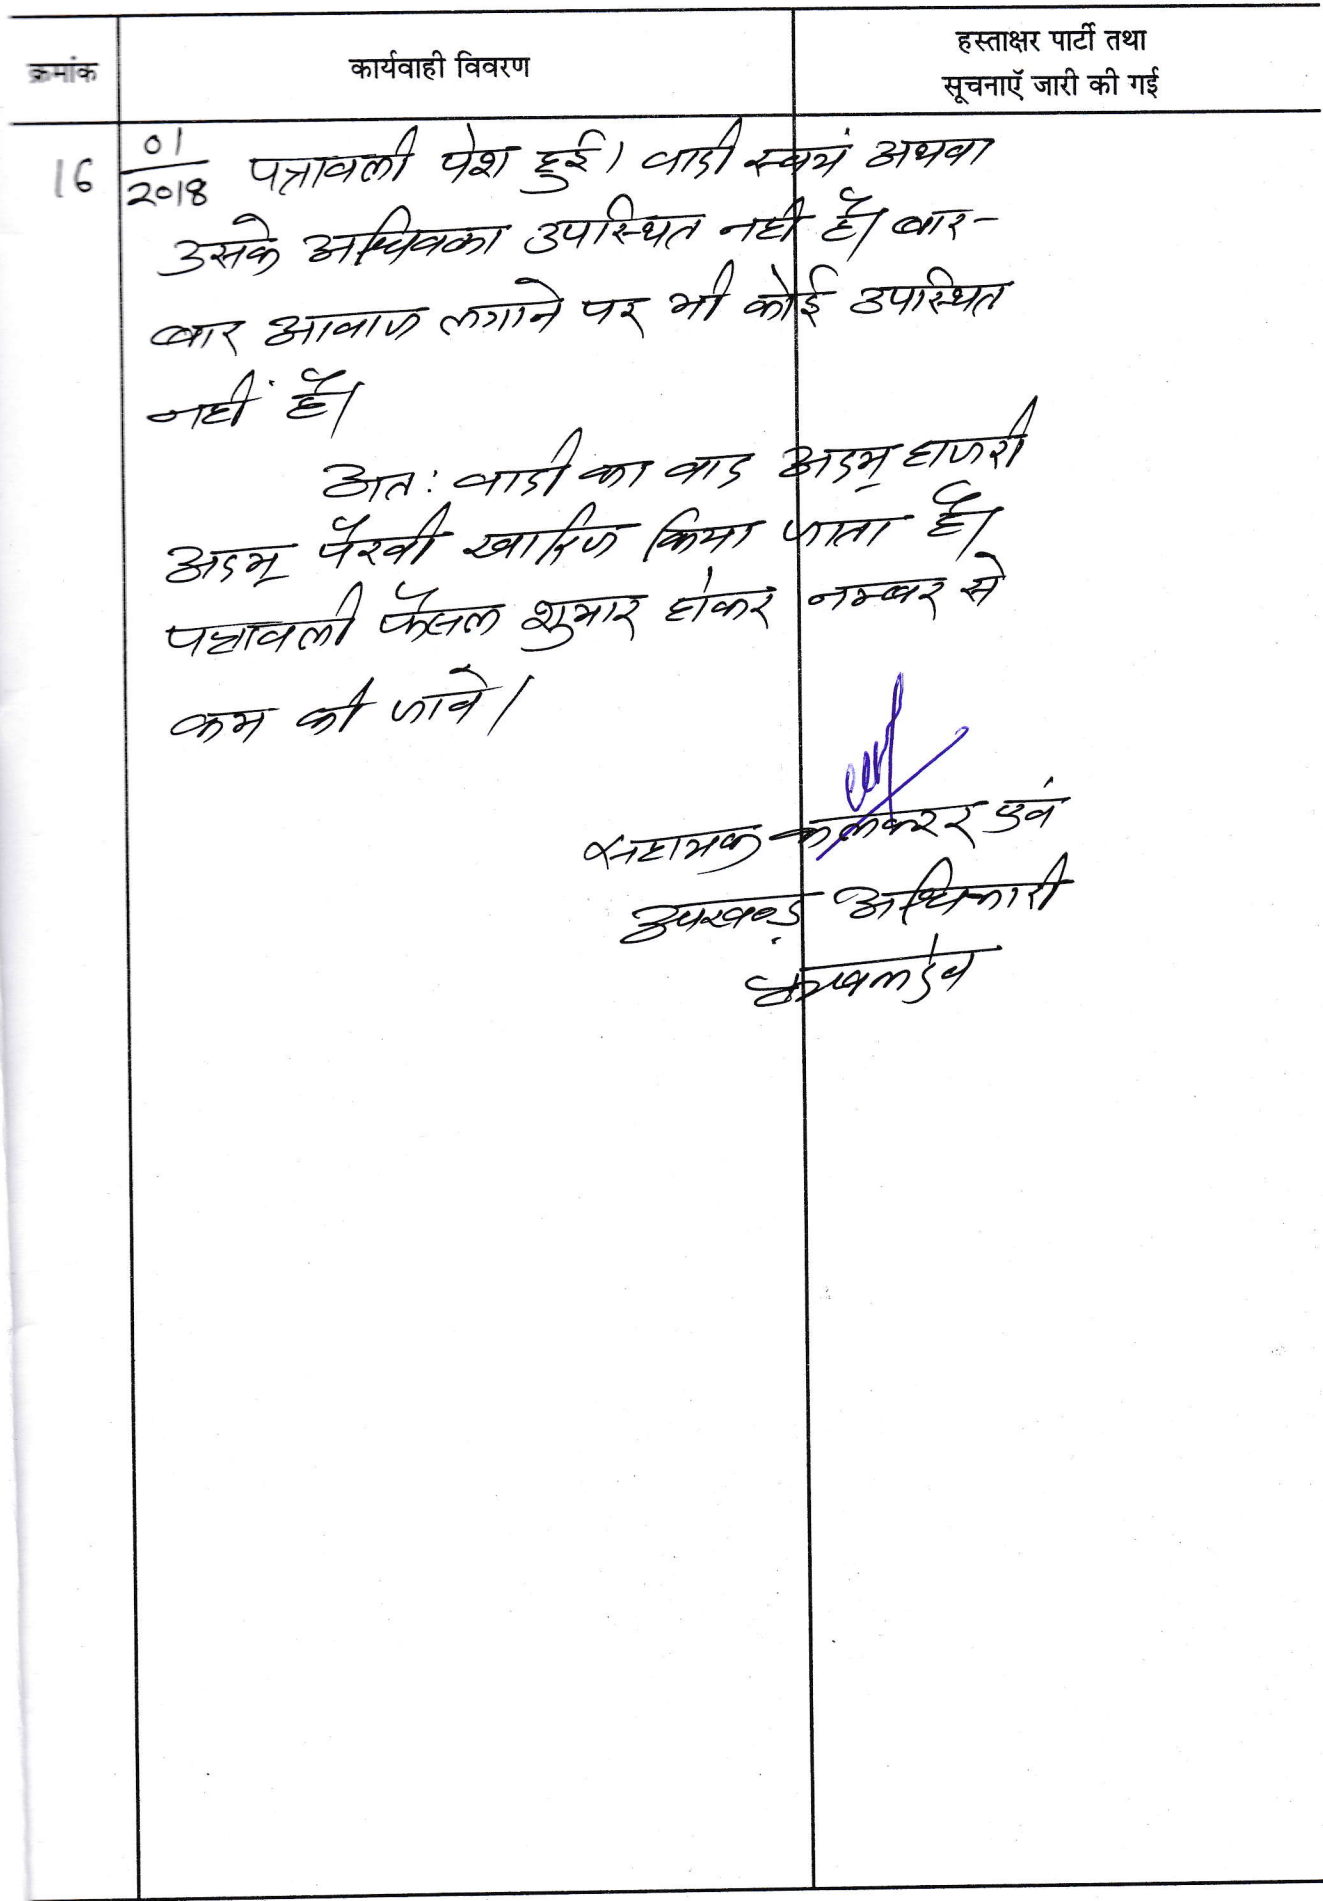 क्रमांक
कार्यवाही विवरण
हस्ताक्षर पार्टी तथा
सूचनाऍ जारी की गई
16 01/2018 पत्रावली पेश हुई। वादी स्वयं अथवा
उसके अधिवक्ता उपस्थित नही है। बार-
बार आवाज लगाने पर भी कोई उपस्थित
नहीं है।
अतः वादी का वाद अदम् हाजरी
अदम् पैरवी खारिज किया जाता है।
पत्रावली फैसल शुमार होकर नम्बर से
कम की जावे।
सहायक कलक्टर एवं
उपखण्ड अधिकारी